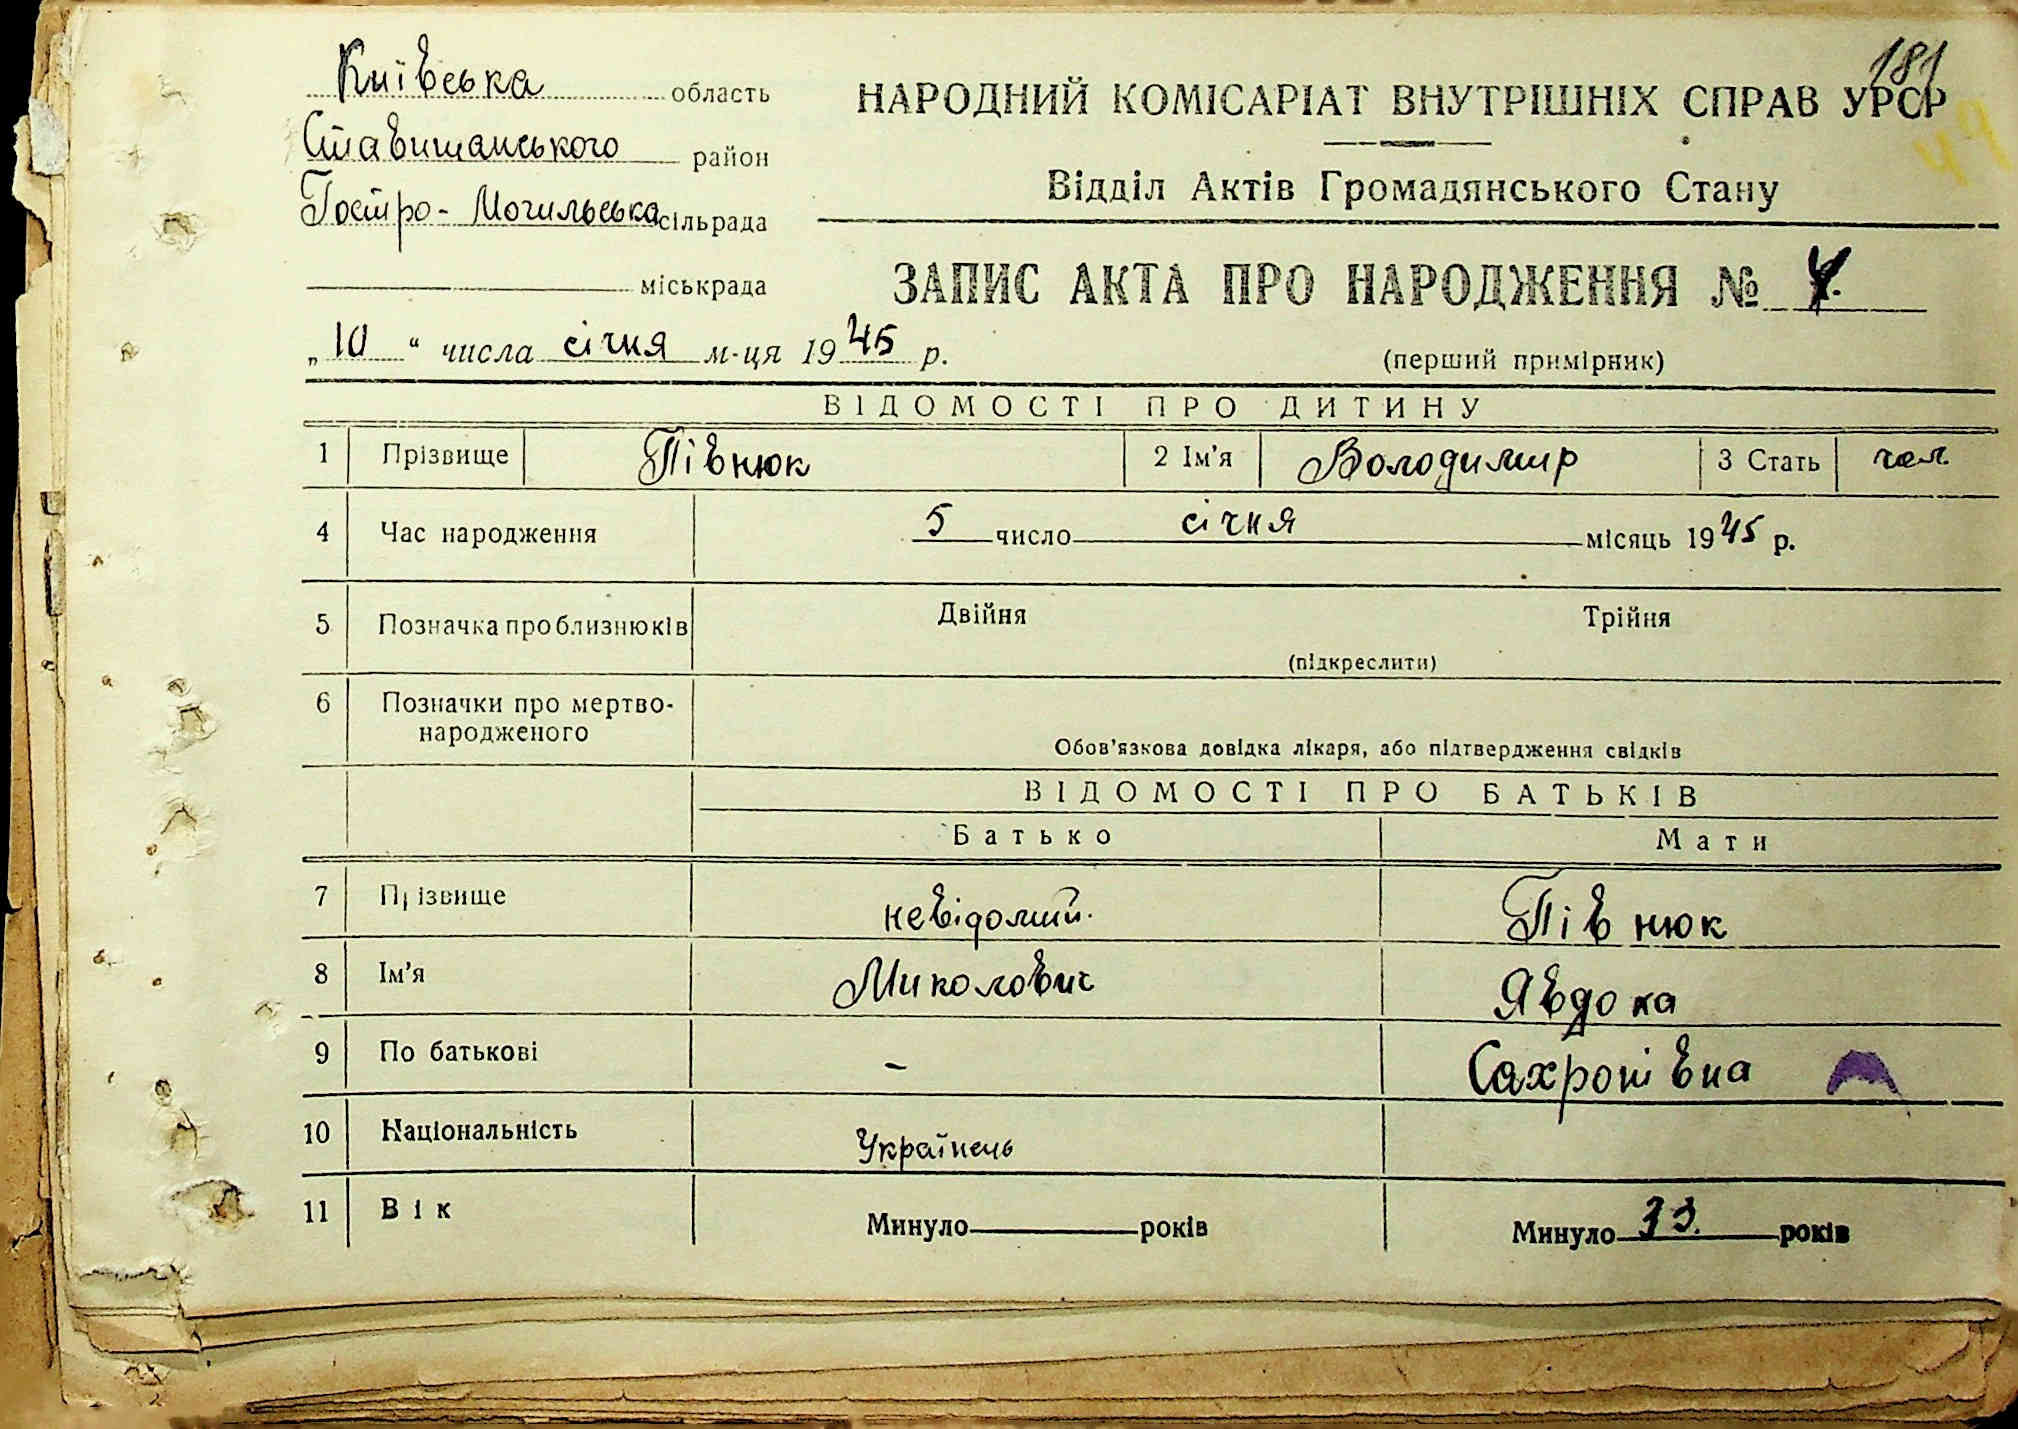 181
49
Київська область
Ставищанського район
Гостро-Могильська сільрада
міськрада
„10“ числа січня м-ця 1945 р.
НАРОДНИЙ КОМІСАРІАТ ВНУТРІШНІХ СПРАВ УРСР
Відділ Актів Громадянського Стану
ЗАПИС АКТА ПРО НАРОДЖЕННЯ № 4.
(перший примірник)
ВІДОМОСТІ ПРО ДИТИНУ
1 Прізвище Півнюк 2 Ім'я Володимир 3 Стать чол
4 Час народження 5 число січня місяць 1945 р.
5 Позначка про близнюків Двійня Трійня
(підкреслити)
6 Позначки про мертво-
народженого
Обов'язкова довідка лікаря, або підтвердження свідків
ВІДОМОСТІ ПРО БАТЬКІВ
Батько Мати
7 Прізвище невідомий. Півнюк
8 Ім'я Миколович Явдока
9 По батькові – Сахронівна
10 Національність Українець
11 Вік Минуло років Минуло 33. років